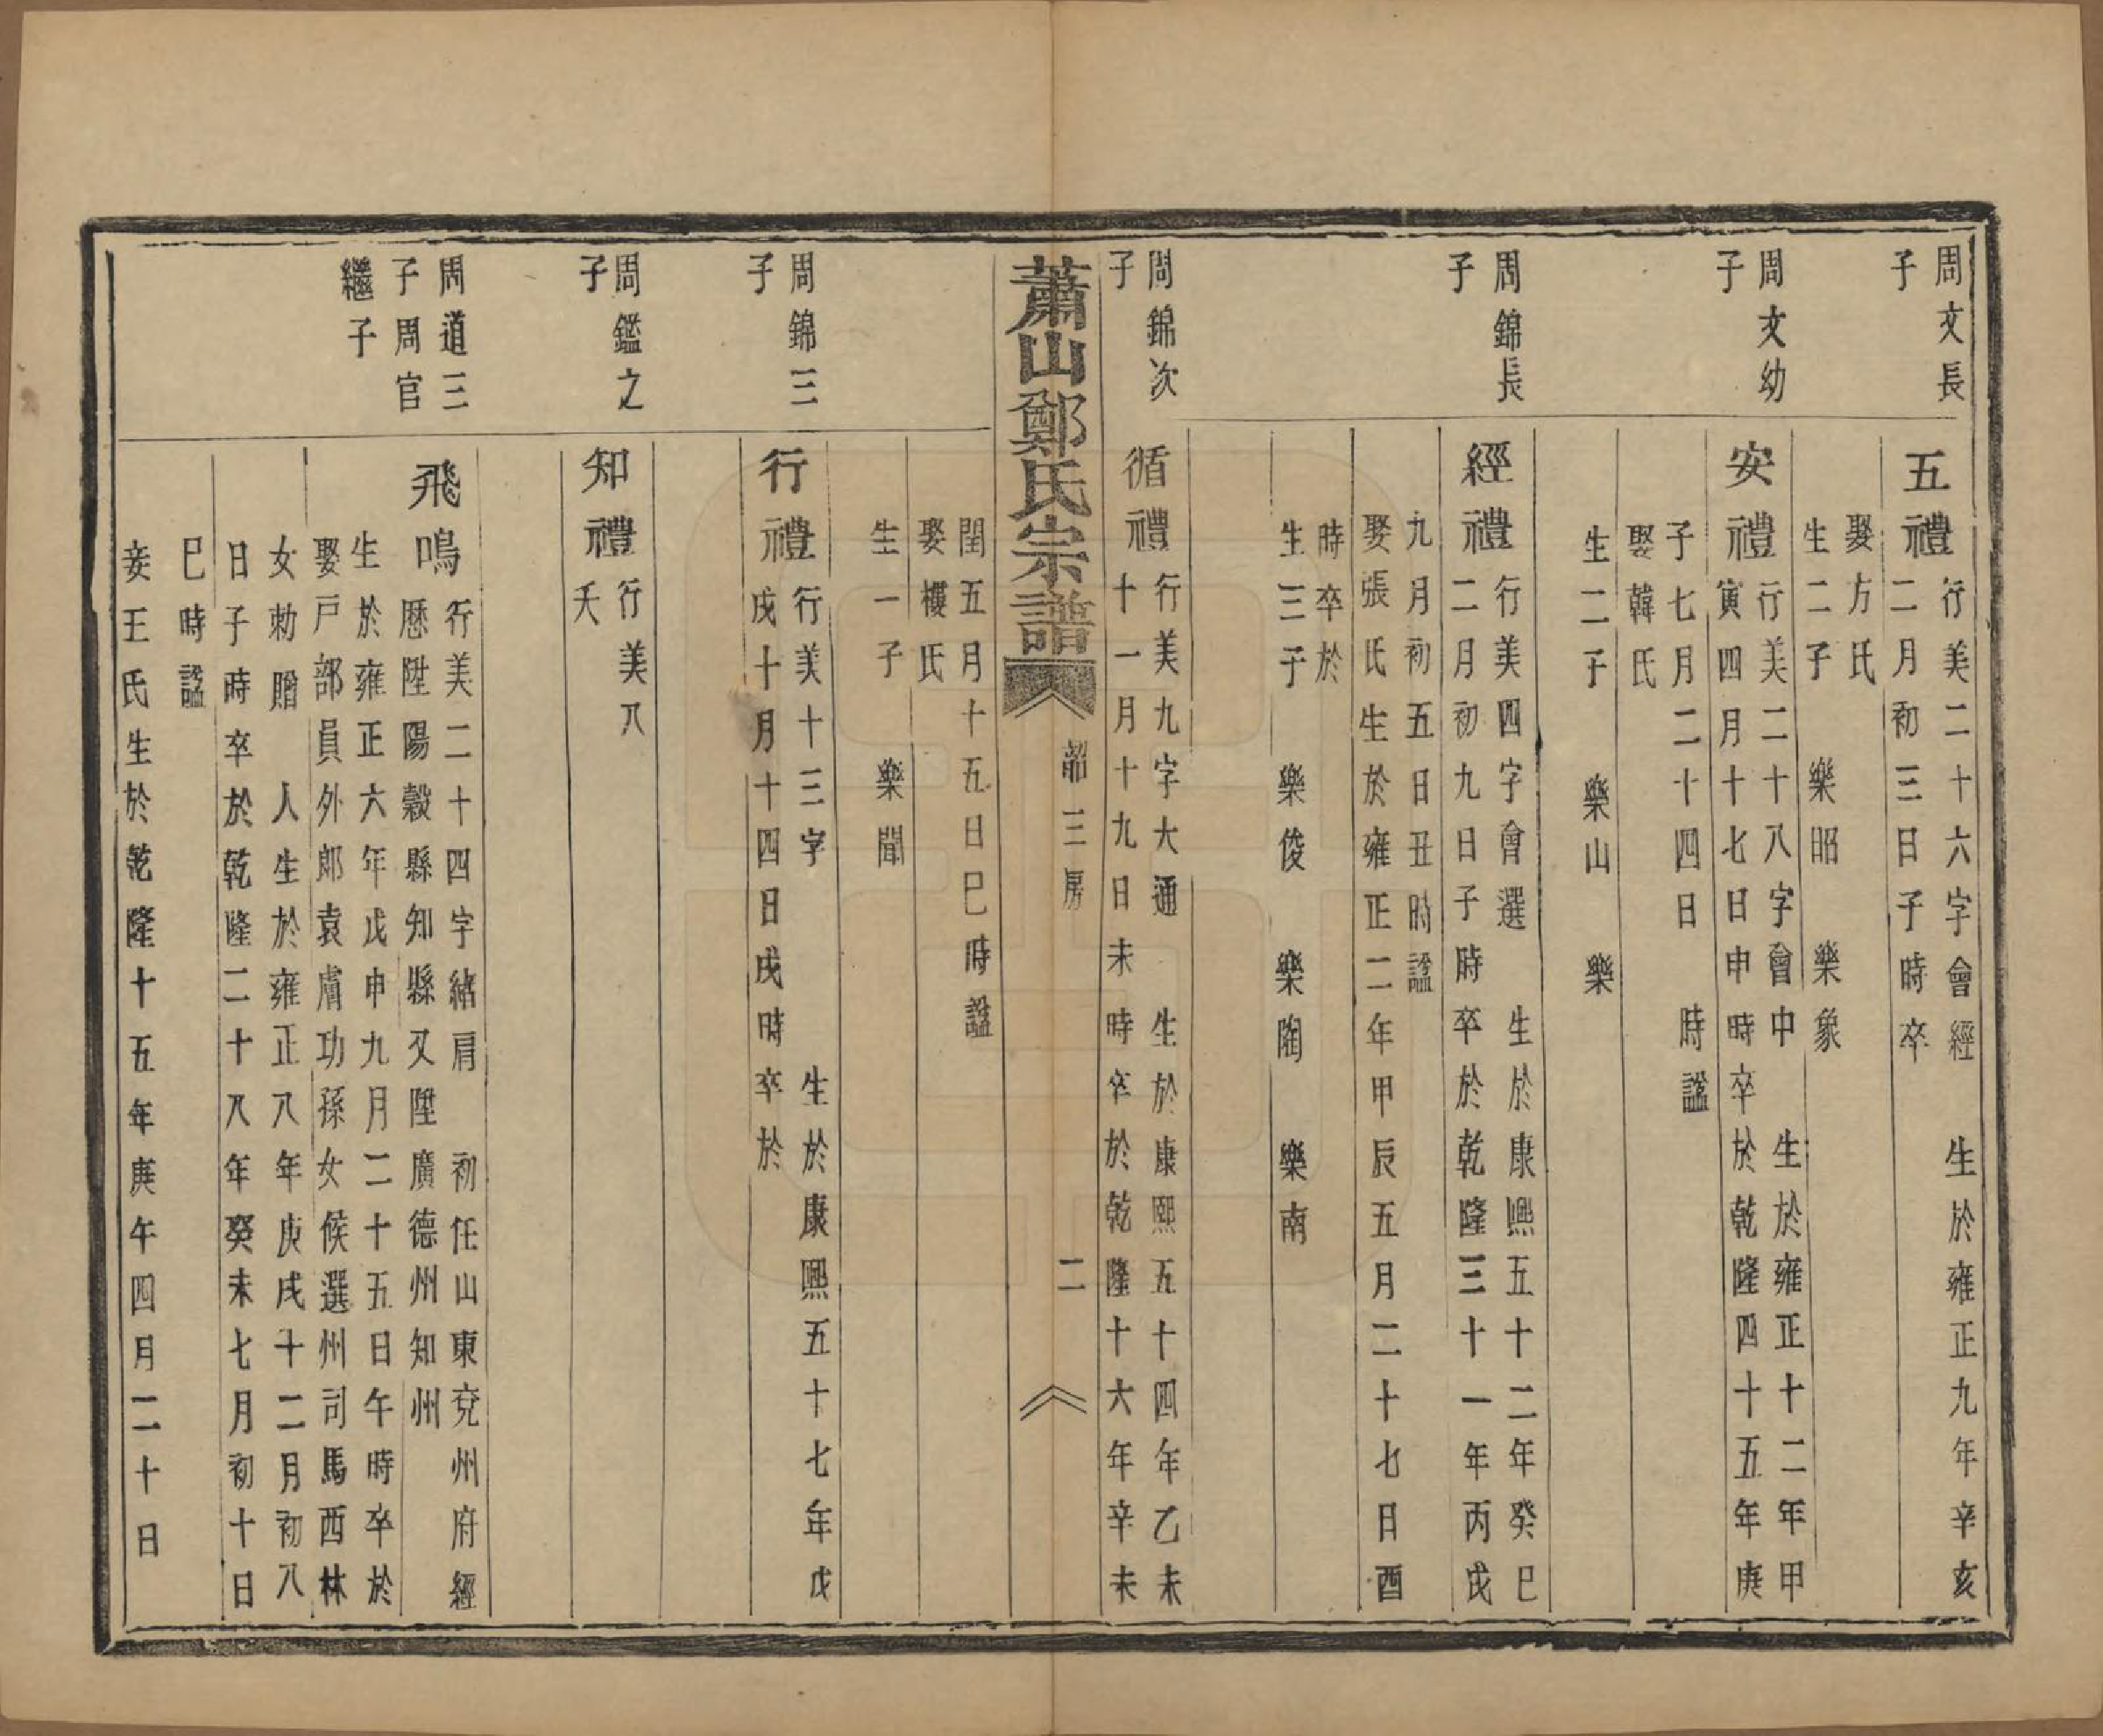 周文長
子
五禮
行美二十六字會經 生於雍正九年辛亥
二月初三日子時卒
娶方氏
生二子 樂昭 樂象
周文幼
子
安禮
行美二十八字會中 生於雍正十二年甲
寅四月十七日申時卒於乾隆四十五年庚
子七月二十四日 時諡
娶韓氏
生二子 樂山 樂
周錦長
子
經禮
行美四字會選 生於康熙五十二年癸巳
二月初九日子時卒於乾隆三十一年丙戌
九月初五日丑時諡
娶張氏生於雍正二年甲辰五月二十七日酉
時卒於
生三子 樂俊 樂陶 樂南
周錦次
子
循禮
行美九字大通 生於康熙五十四年乙未
十一月十九日未時卒於乾隆十六年辛未
蕭山鄭氏宗譜
韶三房
二
閏五月十五日巳時諡
娶樓氏
生一子 樂聞
周錦三
子
行禮
行美十三字 生於康熙五十七年戊
戌十月十四日戌時卒於
周鑑之
子
知禮
行美八
夭
周道三
子周官
繼子
飛鳴
行美二十四字緒肩 初任山東兗州府經
歷陞陽穀縣知縣又陞廣德州知州
生於雍正六年戊申九月二十五日午時卒於
娶戸部員外郎袁膚功孫女候選州司馬西林
女勅贈 人生於雍正八年庚戌十二月初八
日子時卒於乾隆二十八年癸未七月初十日
巳時諡
妾王氏生於乾隆十五年庚午四月二十日